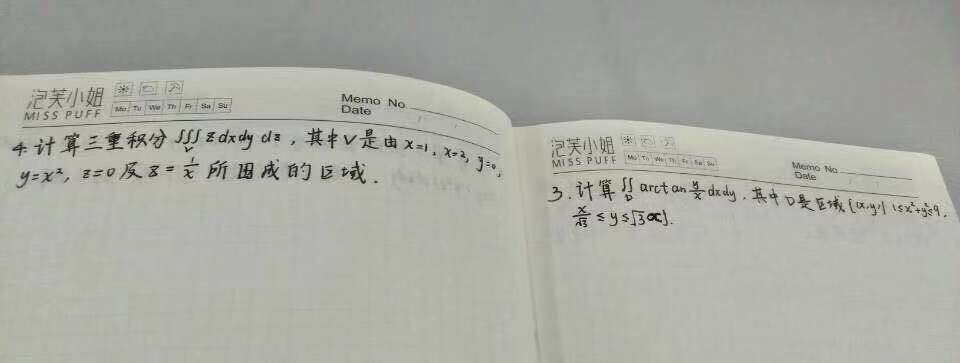 泡芙小姐
MISS PUFF
Mo Tu We Th Fr Sa Su
Memo No.
Date
4. 计算三重积分 ∭_V z dx dy dz , 其中 V 是由 x=1, x=2, y=0,
y=x², z=0 及 z=1/x 所围成的区域.
泡芙小姐
MISS PUFF
Mo Tu We Th Fr Sa Su
Memo No.
Date
3. 计算 ∬_D arctan y/x dx dy , 其中 D 是区域 {(x,y)| 1≤x²+y²≤9,
x/√3 ≤ y ≤ √3 x}.